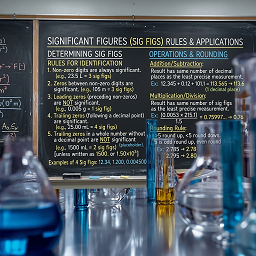 SIGNIFICANT FIGURES (SIG FIGS) RULES & APPLICATIONS
DETERMINING SIG FIGS
RULES FOR IDENTIFICATION
1. Non-zero digits are always significant.
(e.g., 23.5 L = 3 sig figs)
2. Zeros between non-zero digits are
significant. (e.g., 105 m = 3 sig figs)
3. Leading zeros (preceding non-zeros)
are NOT significant.
(e.g., 0.005 g = 1 sig fig)
4. Trailing zeros (following a decimal point)
are significant.
(e.g., 25.00 mL = 4 sig figs)
5. Trailing zeros in a whole number without
a decimal point are NOT significant
(e.g., 1500 mL = 2 sig figs)
[unless written as 1500. or 1.50×10³]
Examples of 4 Sig Figs: 12.34, 1.200, 0.004500
OPERATIONS & ROUNDING
Addition/Subtraction:
Result has same number of decimal
places as the least precise measurement.
Ex: 12.345 + 0.12 + 101.1 = 113.565 → 113.6
(1 decimal place)
Multiplication/Division:
Result has same number of sig figs
as the least precise measurement.
Ex:
1.5
= 0.75997...
Rounding Rule:
round up, <5 round down.
is odd round up, even round down.
2.785 → 2.78
2.795 → 2.80